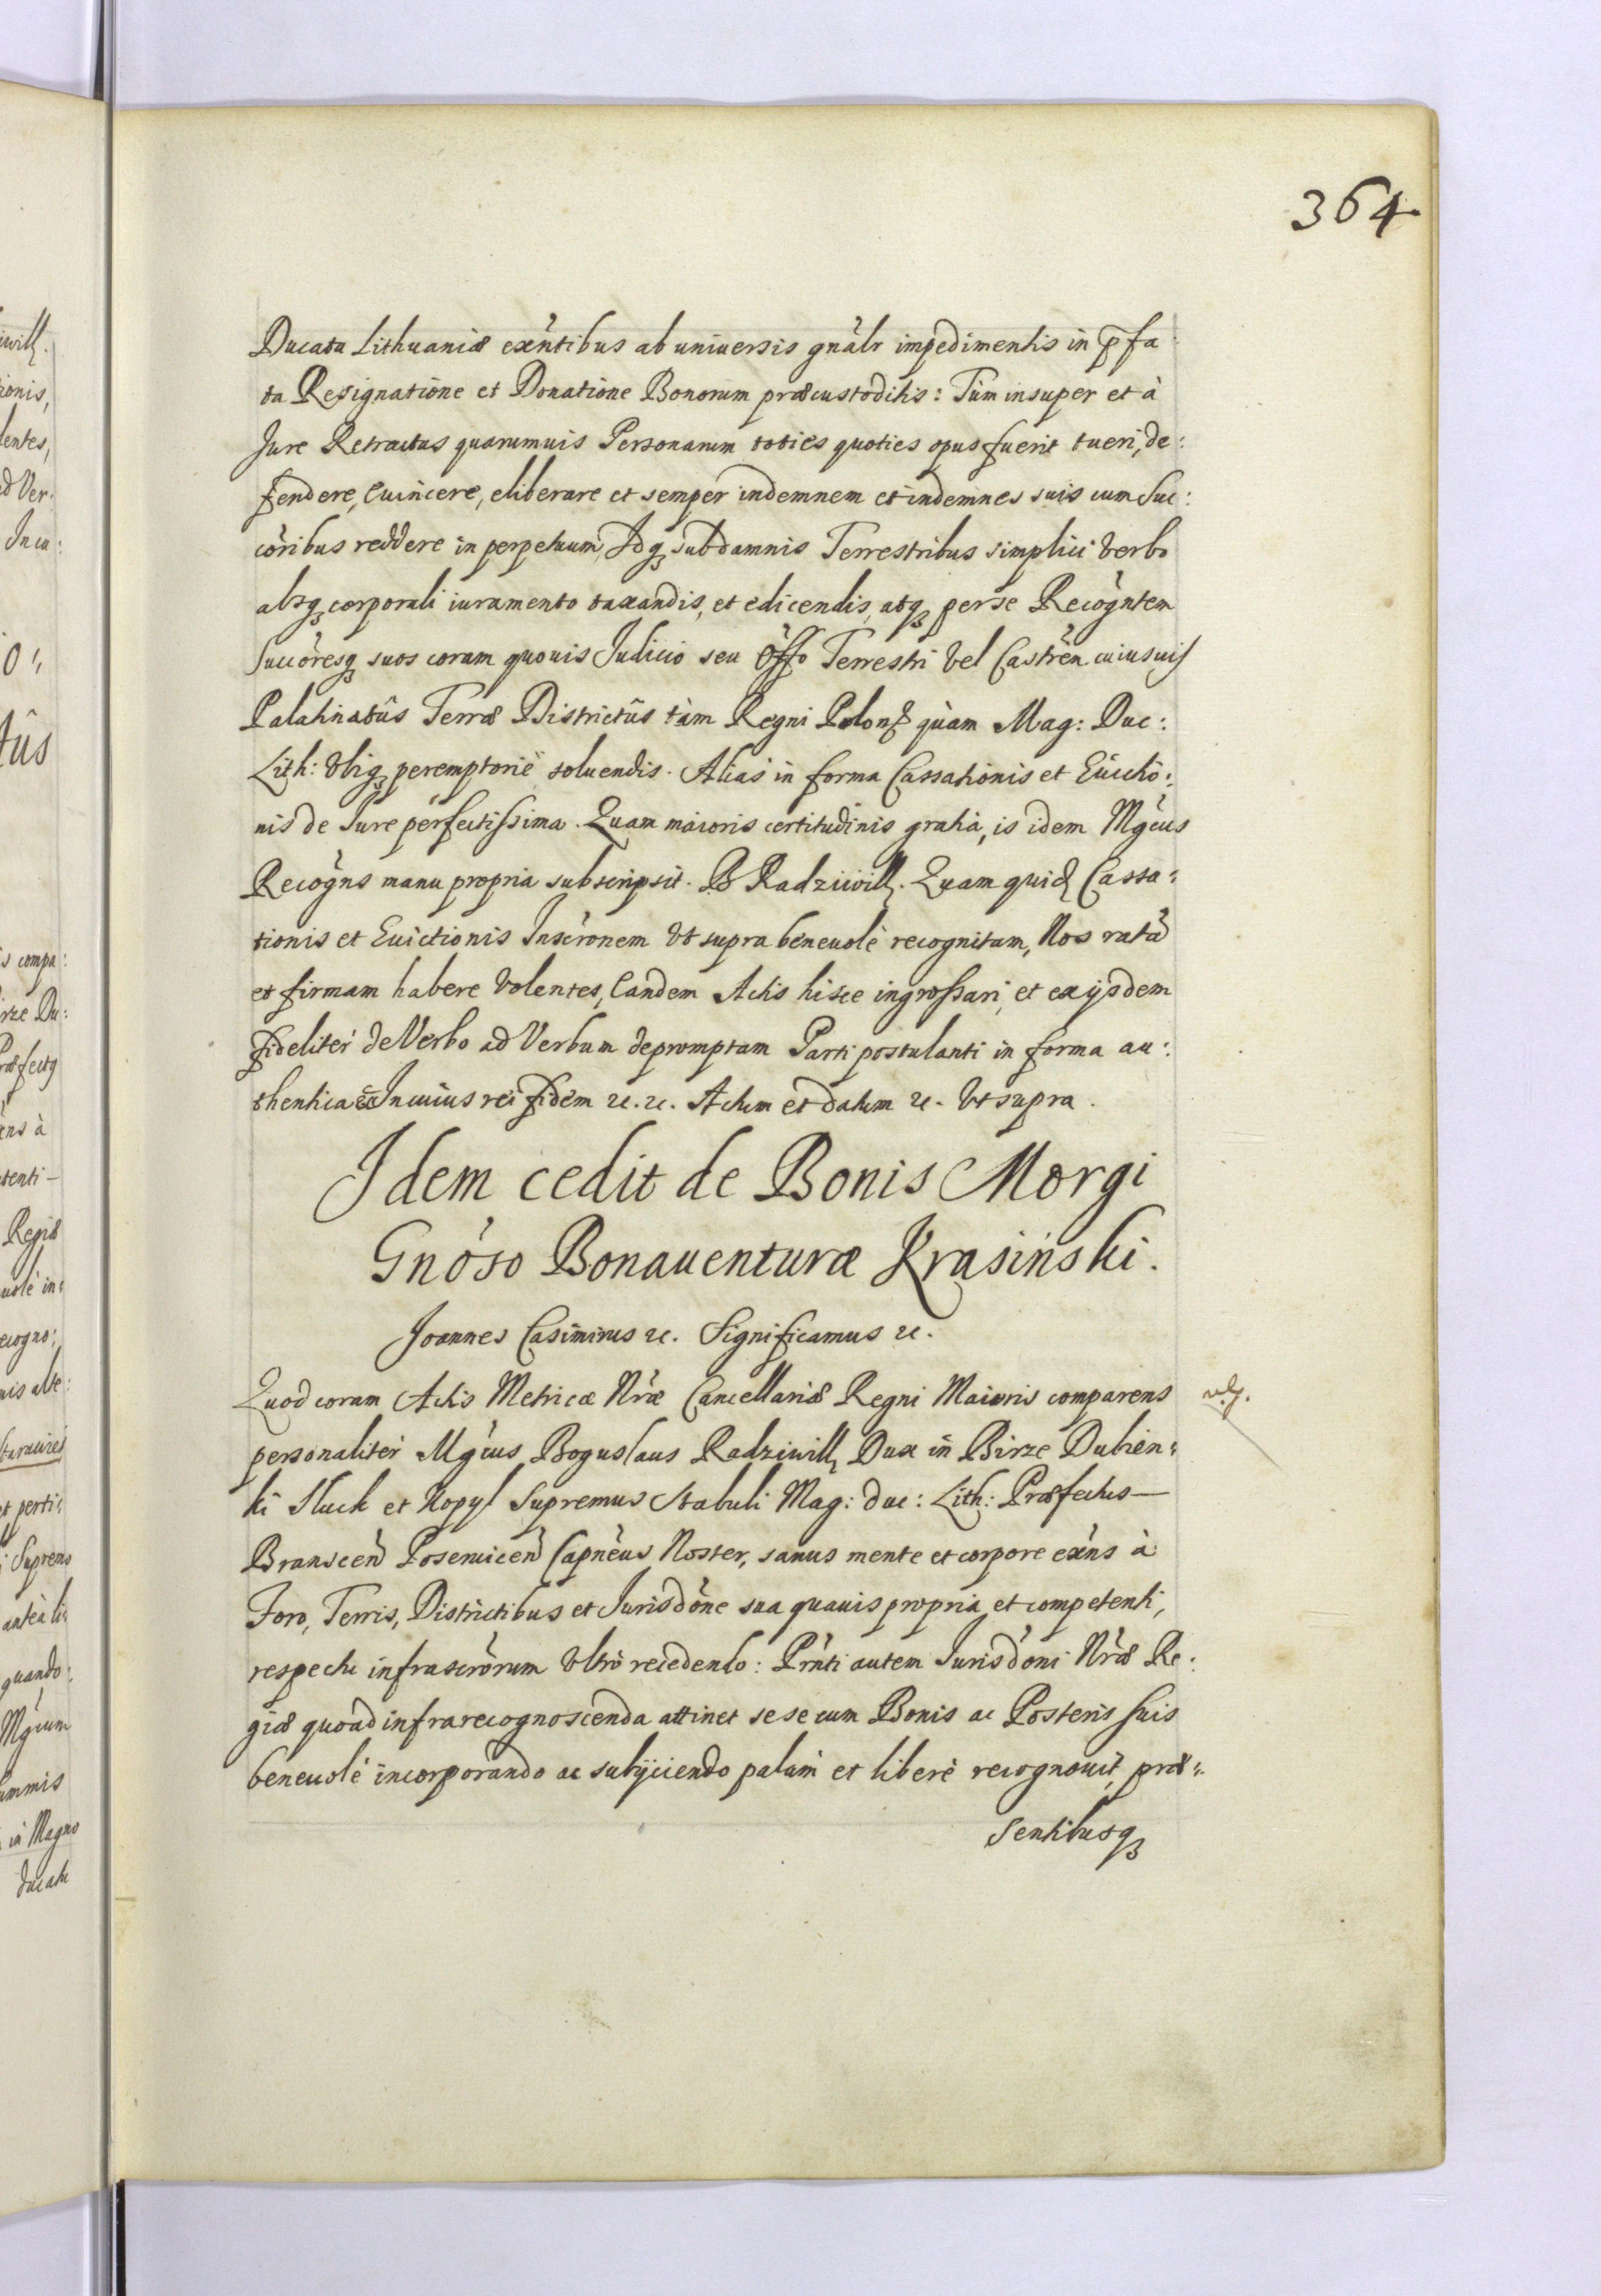 364
Ducatu Lithuaniæ exñtibus ab uniuersis gnãlr impedimentis in p̄fa
ta Resignatione et Donatione Bonorum præcustoditis: Tùm insuper et à
Jure Retractus quarumuis Personarum toties quoties opus fuerit tueri, de:
fendere, Euincere, eliberare et semper indemnem et indemnes suis cum Suc:
cõribus reddere in perpetuum, Idq₃ sub damnis Terrestribus simplici Verbo
absq₃ corporali iuramento taxandis, et edicendis, atq₃ per se Recogñtem
Succõresq₃ suos coram quouis Judicio seu Õffo Terrestri Vel Castreñ cuiusuis
Palatinatûs Terræ Districtûs tàm Regni Poloñ quàm Mag: Duc:
Lith: Vbiq₃ peremptoriè soluendis. Alias in forma Cassationis et Euictio:
nis de Jure perfectissima. Quam maioris certitudinis gratia, is idem Mg̃cus
Recogñs manu propria subscripsit. B Radziwill. Quam quid Cassa:
tionis et Euictionis Inscr̃onem Vt supra beneuolè recognitam, Nos ratã
et firmam habere Volentes, Eandem Actis hisce ingrossari, et ex ijsdem
fideliter de Verbo ad Verbum depromptam Parti postulanti in forma au:
thentica &c In cuius rei fidem &c. &c. Actum et datum &c. Vt supra.
Idem cedit de Bonis Morgi
Gnõso Bonauenturæ Krasiński.
Joannes Casimirus &c. Significamus &c.
Quod coram Actis Metricæ Nr̃æ Cancellariæ Regni Maioris comparens
personaliter Mg̃cus Boguslaus Radziwill Dux in Birze Dubien:
ki Sluck et Kopyl Supremus Stabuli Mag: duc: Lith: Præfectus—
Bransceñ Poseruiceñ Capñeus Noster, sanus mente et corpore exñs à
Foro, Terris, Districtibus et Jurisdõne sua quauis propria et competenti,
respectu infrascr̃orum Vltrò recedendo: Prñti autem Jurisdõni Nr̃æ Re:
giæ quoad infrarecognoscenda attinet sese cum Bonis ac Posteris suis
beneuolè incorporando ac subijciendo palàm et liberè recognouit, præ:
sentibusq₃